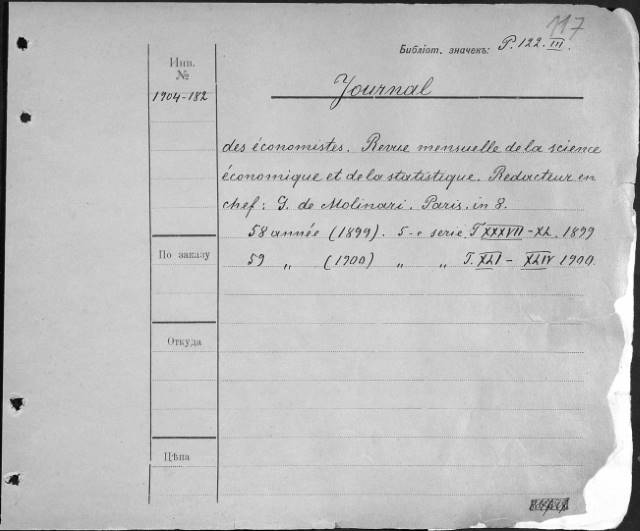 117
Библiот. значекъ: P. 122. III.
Инв. №
1904-182
Journal
des économistes. Revue mensuelle de la science
économique et de la statistique. Rédacteur en
chef: G. de Molinari. Paris. in 8.
58 année (1899). 5-e serie. T XXXVII - XL. 1899
59 „ (1900) „ „ T. XLI - XLIV 1900.
По заказу
Откуда
Цѣна